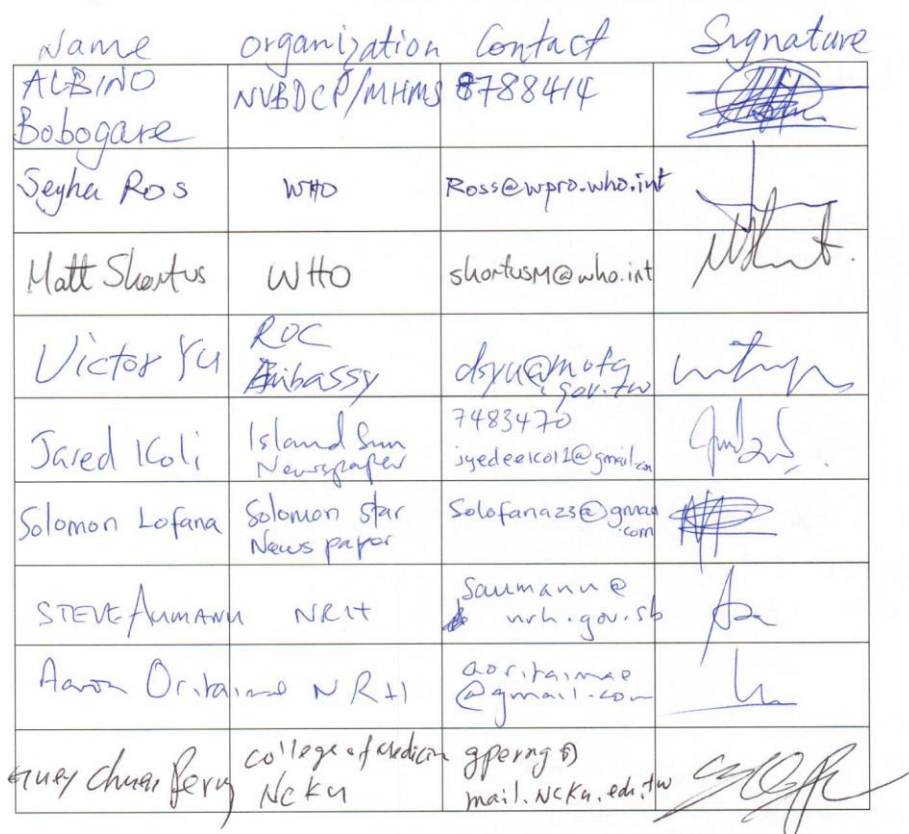 Name organization Contact Signature
ALBINO Bobogare NVBDCP/MHMS 8788414
Seyha Ros WHO Ross@wpro.who.int
Matt Shortus WHO shortusM@who.int
Victor Yu ROC Embassy dsyu@mofa.gov.tw
Jared Koli Island Sun Newspaper 7483470
Solomon Lofana Solomon Star News paper Solofana23@gmail.com
STEVE AUMANU NRH Saumanu@nrh.gov.sb
Aaron Oritaimae NRH aoritaimae@gmail.com
Guey Chuen Perng College of Medicin NCKU gperng@mail.NCKU.edu.tw